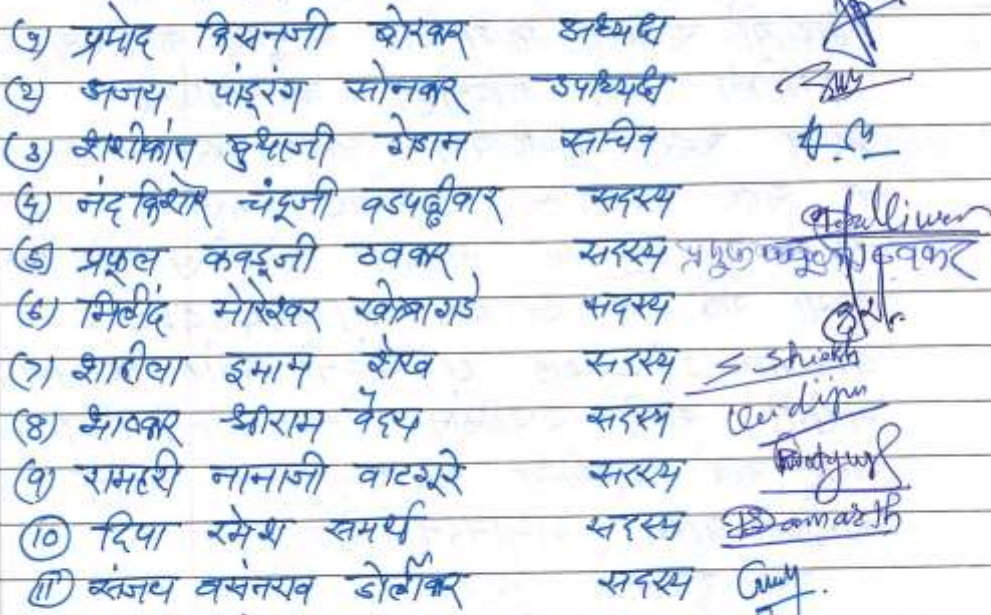 (१) प्रमोद किसनजी बोरकर अध्यक्ष
(२) अजय पांडूरंग सोनकर उपाध्यक्ष
(३) शशीकांत बुधाजी गेडाम सचिव
(४) नंदकिशोर चंदूजी वडपल्लीवार सदस्य
(५) प्रफूल कवडूजी ठवकर सदस्य
(६) मिलींद मोरेश्वर खोब्रागडे सदस्य
(७) शाहीला इमाम शेख सदस्य S Shiekh
(8) भाष्कर श्रीराम वैद्य सदस्य
(9) रामहरी नानाजी वाटगूरे सदस्य
(10) दिपा रमेश समर्थ सदस्य DSamarth
(11) संजय वसंतराव डोर्लीकर सदस्य